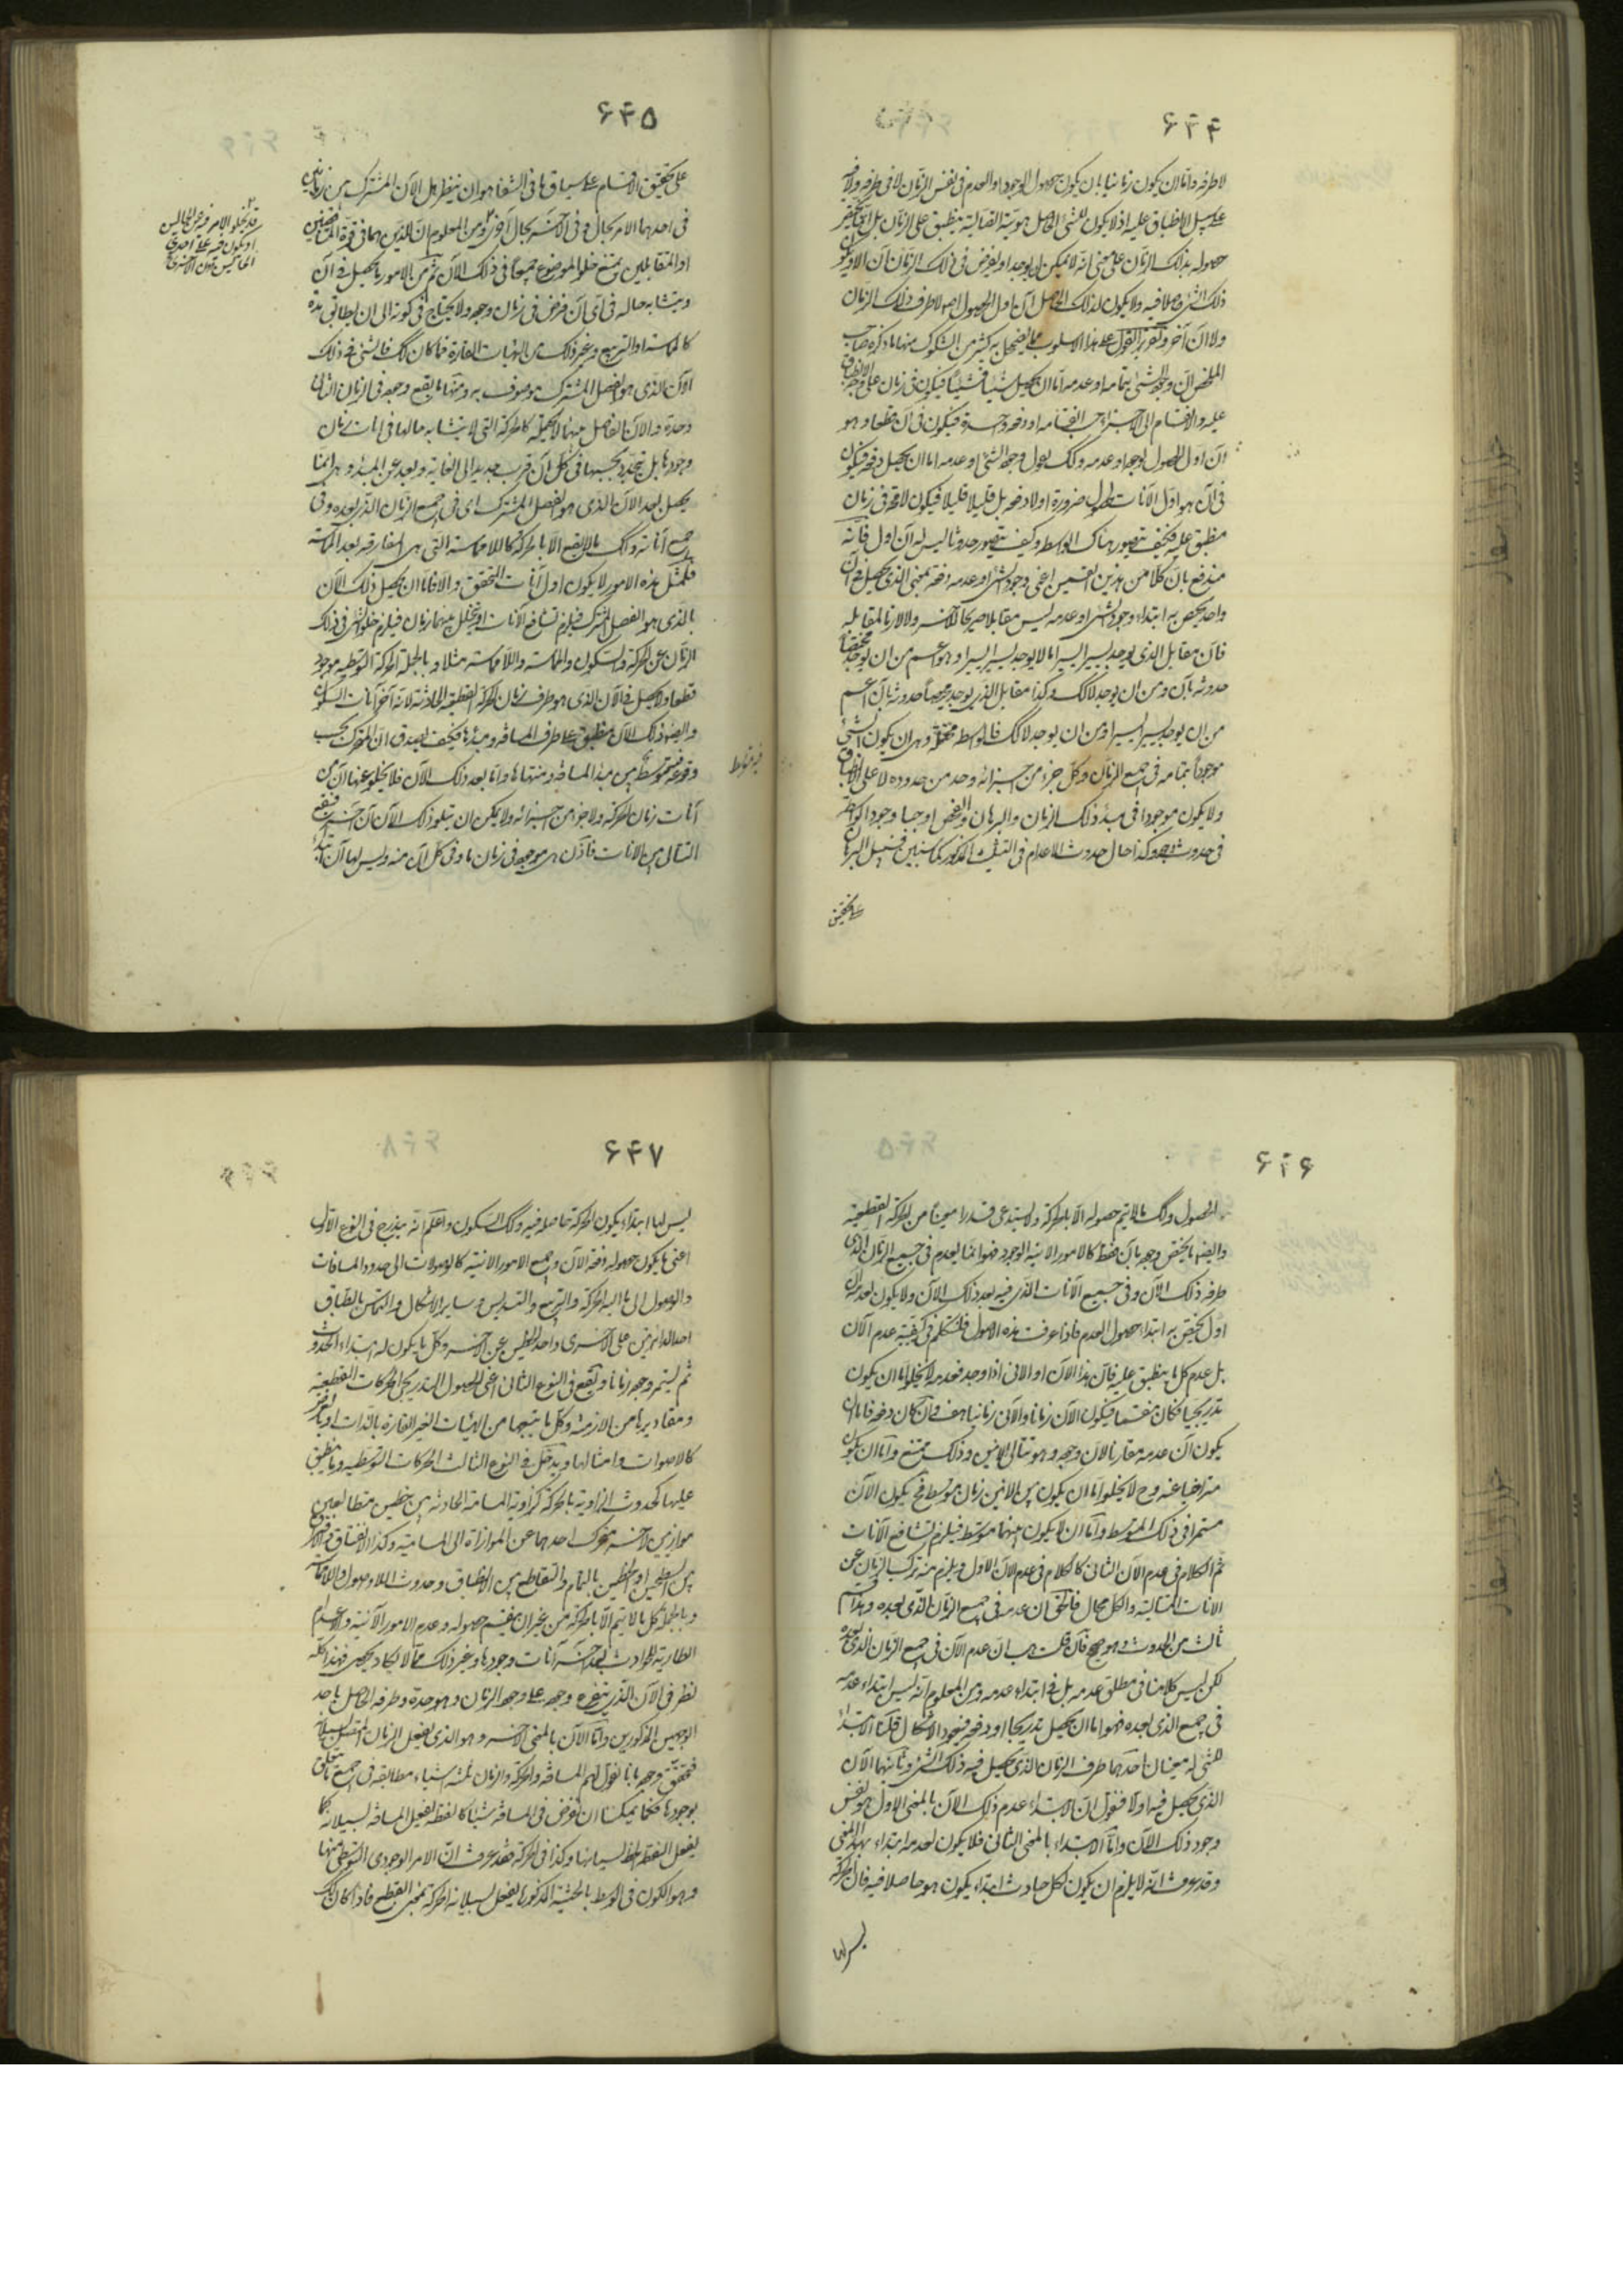 ٦۴۴
لا طرفه واما ان يكون زمانيا بان يكون حصول الوجود او العدم فى نفس الزمان لا فى طرفه ولا
على سبيل الانطباق عليه اذ لا يكون للشئ الحاصل هوية اتصالية ينطبق على الزمان بل
حصوله بذلك الزمان على معنى انه لا يمكن ان يوجد او يفرض فى ذلك الزمان آن الا و يكون
ذلك الشئ حاصلا فيه ولا يكون لذلك الحاصل آن اول الحصول اصلا لا طرف ذلك الزمان
ولا آن آخر وتقرير القول على هذا الاسلوب مما يضمحل به كثير من الشكوك منها ما ذكره صاحب
الملخص ان وجود الشئ بتمامه او عدمه اما ان يحصل شيئا فشيئا فيكون فى زمان على وجه الانطباق
عليه والانقسام الى الاجزاء حسب انقسامه او دفعة واحدة فيكون فى آن قطعا وهو
آن اول الحصول لوجود او عدمه وكك يقول وجود الشئ او عدمه اما ان يحصل دفعة فيكون
فى آن هو اول الآنات الحصول ضرورة او لا دفعة بل قليلا قليلا فيكون لا محة فى زمان
منطبق عليه فكيف يتصور هناك الواسطة وكيف يتصور حدوث ليس له آن اول فانه
مندفع بان كلا من هذين القسمين اعنى وجود الشئ او عدمه دفعة بمعنى الذى يحصل فى آن
واحد يختص به ابتداء وجود الشئ او عدمه ليس مقابلا صريحا للآخر ولا لازما لمقابله
فان مقابل الذى يوجد يسيرا يسيرا ما لا يوجد يسيرا يسيرا وهو اعم من ان يوجد مختصا
حدوثه بآن ومن ان يوجد لا كك وكذا مقابل الذى يوجد مختصا حدوثه بآن اعم
من ان يوجد يسيرا يسيرا ومن ان يوجد لا كك فالواسطة محتملة وهى ان يكون الشئ
موجودا بتمامه فى جميع الزمان وكل جزء من اجزائه وحد من حدوده لا على الانطباق
ولا يكون موجودا فى مبدء ذلك الزمان والبرهان والفحص اوجبا وجود الواسطة
فى حدوث الوجود وكذا حال حدوث الاعدام فى التثليث المذكور كما سنبين فسبيل البرهان
على تحقيق
٦۴۵
على تحقيق الاقسام على سياق ما فى الشفا هو ان ينظر هل الآن المشترك بين زمانين
فى احدهما الامر بحال وفى الآخر بحال آخر ومن المعلوم ان الذين هما فى قوة المتناقضين
او المتقابلين يمتنع خلو الموضوع عنهما فى ذلك الآن ثم من الامور ما يحصل فى آن
ويتشابه حاله فى اى آن فرض فى زمان وجوده ولا يحتاج فى كونه الى ان يطابق مدة
كالمماسة او التربيع وغير ذلك من الهيئات القارة فما كان كك فالشئ فى ذلك
الآن الذى هو الفصل المشترك موصوف به ومنها ما يقع وجوده فى الزمان الثانى
وحده والآن الفاصل بينهما لا يحتمله كالحركة التى لا يتشابه حالها فى آنات زمان
وجودها بل يتجدد بحسبها فى كل آن قرب جديد الى الغاية وبعد عن المبدء وهى انما
يحصل بعد الآن الذى هو الفصل المشترك اى فى جميع الزمان الذى بعده وفى
جميع آناته وكك ما لا يقع الا بالحركة كاللامماسة التى هى المفارقة بعد المماسة
فمثل هذه الامور لا يكون اول آنات التحقق والا فاما ان يحصل ذلك الآن
بالذى هو الفصل المشترك فيلزم تشافع الآنات او يتخلل بينهما زمان فيلزم خلو الشئ فى ذلك
الزمان عن الحركة والسكون والمماسة واللامماسة مثلا وبالجملة الحركة التوسطية موجود
قطعا ولا يحصل فى الآن الذى هو طرف زمان الحركة القطعية الحادثة لانه آخر آنات السكون
وايضا ذلك الآن منطبق على طرف المسافة ومبدءها فكيف يصدق ان المتحرك بحسب
وقوعه فيه متوسط بين مبدء المسافة ومنتهاها واما بعد ذلك الآن فلا يخلو عنها آن من
آنات زمان الحركة ولا جزء من اجزائه ولا يمكن ان يتلو ذلك الآن آن آخر
التتالى بين الآنات فاذن هى موجودة فى زمان ما وفى كل آن منه وليس لها آن ابتداء
قد يخلو الامر فيه عن الحالين
او يكون فيه على احدى
الحالتين دون الاخرى
فيه متوسط
٦۴٦
الحصول وكك ما لا يتم حصوله الا بالحركة ولا يستدعى قدرا معينا من الحركة القطعية
وايضا ما يختص وجوده بآن فقط كالامور الانية الوجود فهو انما يعدم فى جميع الزمان الذى
طرفه ذلك الآن وفى جميع الآنات الذى فيه بعد ذلك الآن ولا يكون لعدمه آن
اول يختص به ابتداء حصول العدم فاذا عرفت هذه الاصول فلنتكلم فى كيفية عدم الآن
بل عدم كل ما ينطبق عليه فان هذا الآن او الآنى اذا وجد فعدمه لا يخلو اما ان يكون
تدريجيا فكان منقسما فيكون الآن زمانا والآنى زمانيا هف وان كان دفعة فاما ان
يكون آن عدمه مقارنا لآن وجوده وهو تتالى الآنين وذلك ممتنع واما ان يكون
متراخيا عنه وح لا يخلو اما ان يكون بين الآنين زمان متوسط فح يكون الآن
مستمرا فى ذلك المتوسط واما ان لا يكون بينهما متوسط فيلزم تشافع الآنات
ثم الكلام فى عدم الآن الثانى كالكلام فى عدم الآن الاول ويلزم منه تركب الزمان عن
الآنات المتتالية والكل محال فالحق ان عدمه فى جميع الزمان الذى بعده وهذا قسم
ثالث من الحدوث وهو صحيح فان قلت هب ان عدم الآن فى جميع الزمان الذى بعده
لكن ليس كلامنا فى مطلق عدمه بل فى ابتداء عدمه ومن المعلوم انه ليس ابتداء عدمه
فى جميع الذى بعده فهو اما ان يحصل تدريجا او دفعة فيعود الاشكال قلنا الابتداء
للشئ له معنيان احدهما طرف الزمان الذى يحصل فيه ذلك الشئ وثانيهما الآن
الذى يحصل فيه اولا فنقول ان ابتداء عدم ذلك الآن بالمعنى الاول هو نفس
وجود ذلك الآن واما الابتداء بالمعنى الثانى فلا يكون لعدمه ابتداء بهذا المعنى
وقد عرفت انه لا يلزم ان يكون لكل حادث ابتداء يكون هو حاصلا فيه فان الحركة
ليس لها
٦۴۷
ليس لها ابتداء يكون الحركة حاصلة فيه وكك السكون واعلم انه يندرج فى النوع الاول
اعنى ما يكون حصوله دفعة الآن وجميع الامور الآنية كالوصولات الى حدود المسافات
والوصول الى ما اليه الحركة والتربيع والتسديس وساير الاشكال والتماس بانطباق
احد الدائرتين على الاخرى واحد الخطين عن الآخر وكل ما يكون له ابتداء الحدوث
ثم يستمر وجوده زمانا ويقع فى النوع الثانى اعنى الحصول التدريجى الحركات القطعية
ومقاديرها من الازمنة وكل ما يتبعهما من الهيئات الغير القارة بالذات او بالعرض
كالاصوات وامثالها ويدخل فى النوع الثالث الحركات التوسطية وما ينطبق
عليها كحدوث الزاوية بالحركة كزاوية المسامتة الحادثة بين خطين متطابقين
موازيين لآخر يتحرك احدهما عن الموازاة الى المسامتة وكذا الافتراق
بين السطحين او الخطين بالتمام والتقاطع بين الانطباق وحدوث اللاوصول واللامماسة
وبالجملة كل ما لا يتم الا بالحركة من غير ان ينقسم حصوله وعدم الامور الآنية والاعدام
الطارية للحوادث بعد آخر آنات وجودها وغير ذلك مما لا يكاد يحصى فهذا كله
نظر فى الآن الذى يتفرع وجوده على وجود الزمان وهو حده وطرفه الحاصل باحد
الوجهين المذكورين واما الآن بالمعنى الآخر وهو الذى يفعل الزمان المتصل بسيلانه
فتحقق وجوده بانا نقول لهم المسافة والحركة والزمان ثلثة اشياء متطابقة فى جميع ما يتعلق
بوجودها فكما يمكننا ان نفرض فى المسافة شيئا كالنقطة يفعل المسافة بسيلانه كما
يفعل النقطة الخط بسيلانها وكذا فى الحركة فقد عرفت ان الامر الوجودى التوسطى منها
وهو الكون فى الوسط بالحيثية المذكورة يفعل بسيلانه الحركة بمعنى القطع فاذا كان كك